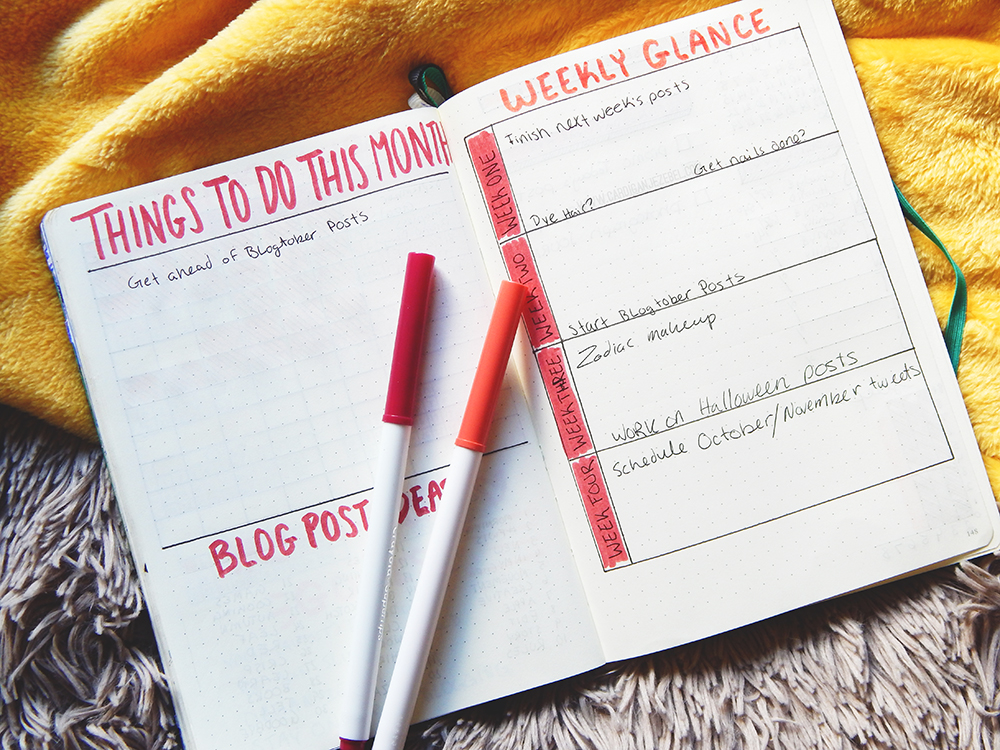 THINGS TO DO THIS MONTH
Get ahead of Blogtober Posts
BLOG POST IDEAS
WEEKLY GLANCE
WEEK ONE
Finish next week's posts
Get nails done?
Dye Hair?
WEEK TWO
Start Blogtober Posts
WEEK THREE
Zodiac makeup
Work on Halloween posts
WEEK FOUR
Schedule October/November tweets